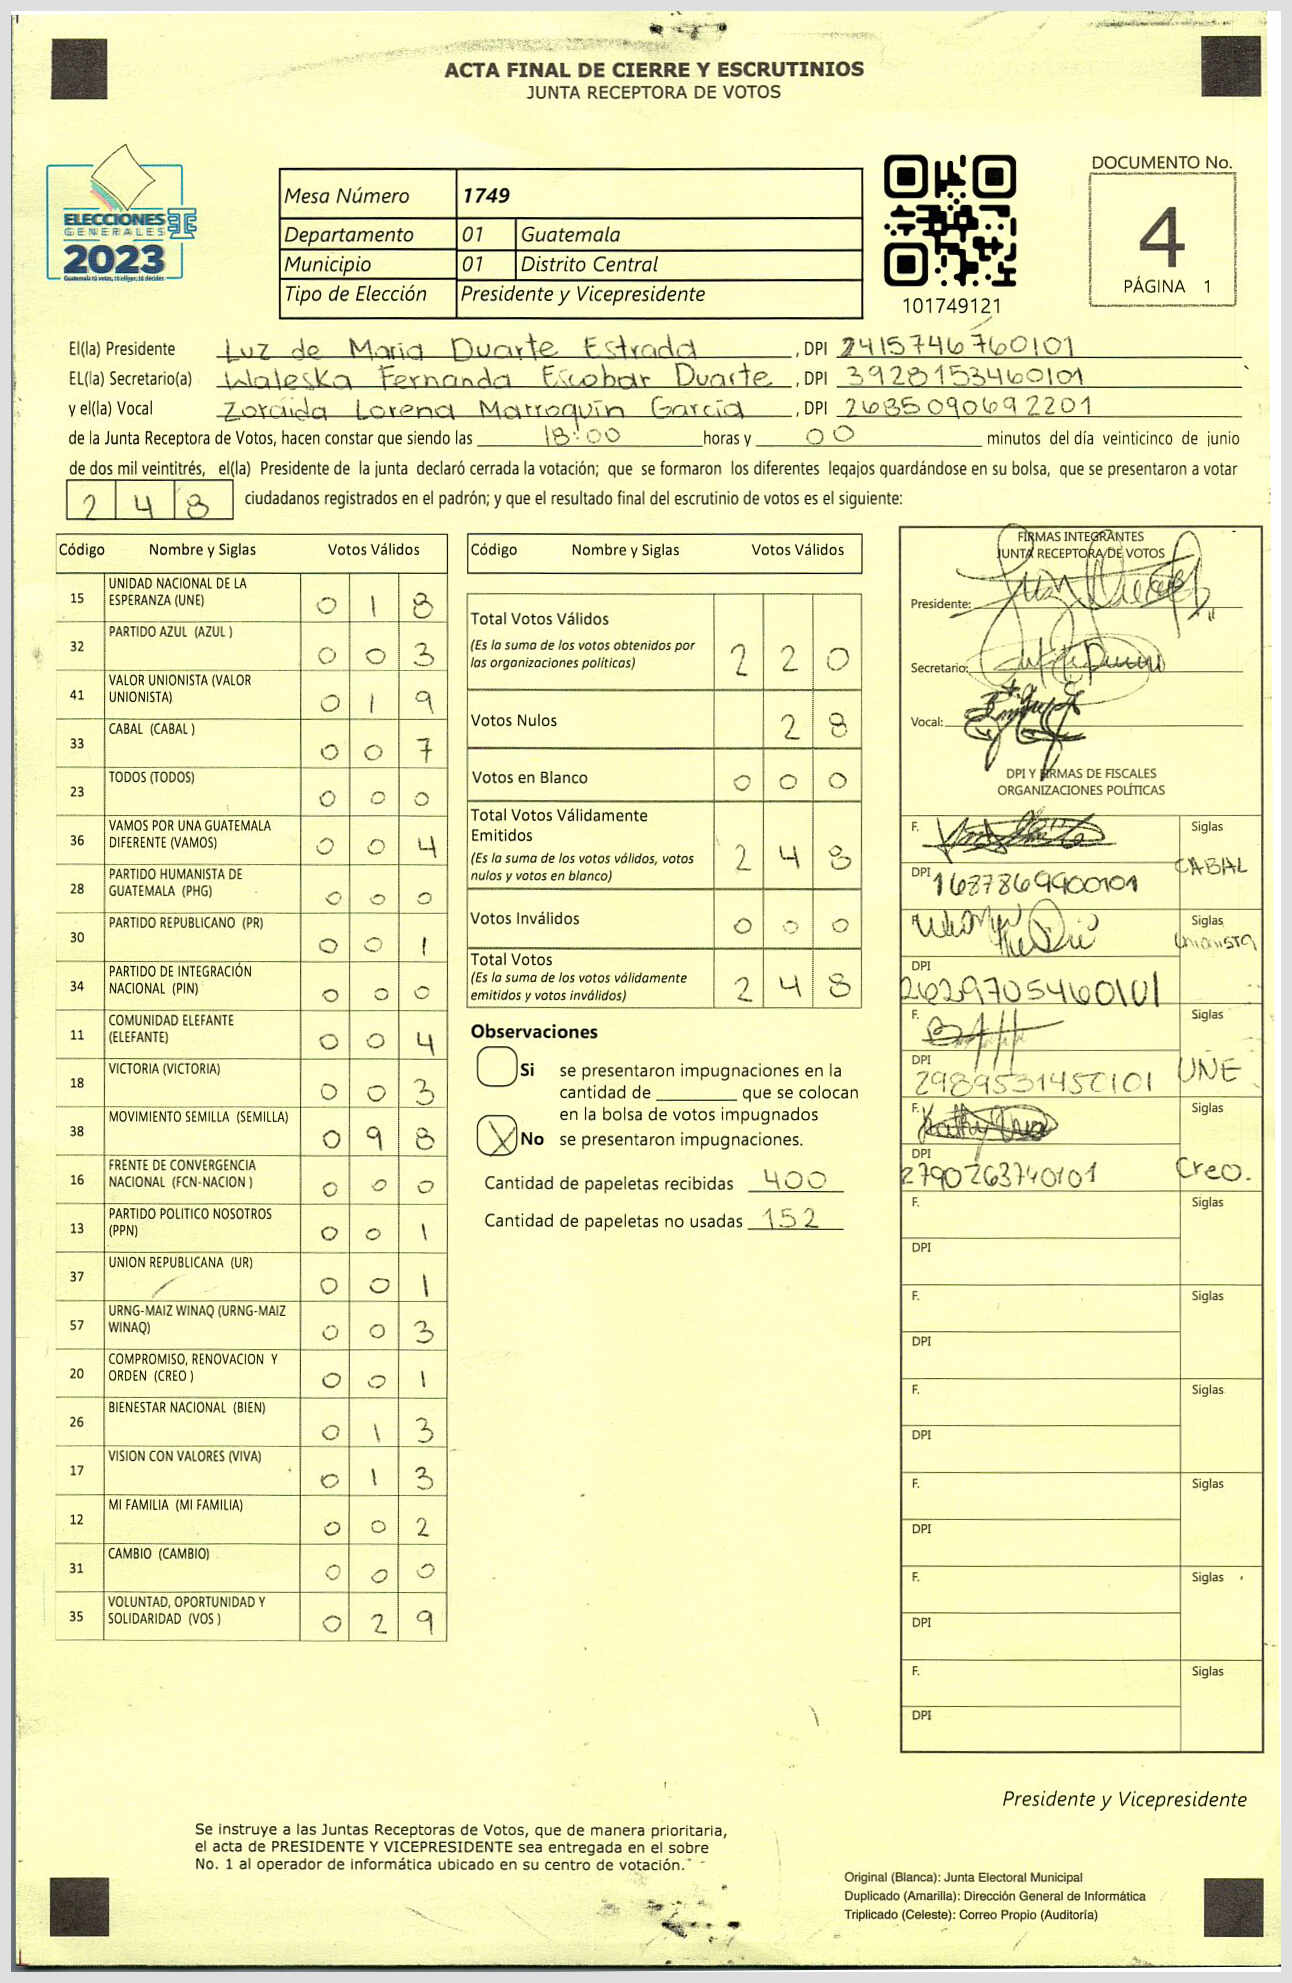 ACTA FINAL DE CIERRE Y ESCRUTINIOS
JUNTA RECEPTORA DE VOTOS
ELECCIONES
GENERALES
2023
Mesa Número 1749
Departamento 01 Guatemala
Municipio 01 Distrito Central
Tipo de Elección Presidente y Vicepresidente
101749121
DOCUMENTO No.
4
PÁGINA 1
El(la) Presidente Luz de Maria Duarte Estrada, DPI 2415746760101
EL(la) Secretario(a) Waleska Fernanda Escobar Duarte, DPI 3928153460101
y el(la) Vocal Zoraida Lorena Marroquín García, DPI 2685090692201
de la Junta Receptora de Votos, hacen constar que siendo las 18:00 horas y 00 minutos del día veinticinco de junio
de dos mil veintitrés, el(la) Presidente de la junta declaró cerrada la votación; que se formaron los diferentes legajos guardándose en su bolsa, que se presentaron a votar
248 ciudadanos registrados en el padrón; y que el resultado final del escrutinio de votos es el siguiente:
Código Nombre y Siglas Votos Válidos
15 UNIDAD NACIONAL DE LA ESPERANZA (UNE) 0 1 8
32 PARTIDO AZUL (AZUL ) 0 0 3
41 VALOR UNIONISTA (VALOR UNIONISTA) 0 1 9
33 CABAL (CABAL ) 0 0 7
23 TODOS (TODOS) 0 0 0
36 VAMOS POR UNA GUATEMALA DIFERENTE (VAMOS) 0 0 4
28 PARTIDO HUMANISTA DE GUATEMALA (PHG) 0 0 0
30 PARTIDO REPUBLICANO (PR) 0 0 1
34 PARTIDO DE INTEGRACIÓN NACIONAL (PIN) 0 0 0
11 COMUNIDAD ELEFANTE (ELEFANTE) 0 0 4
18 VICTORIA (VICTORIA) 0 0 3
38 MOVIMIENTO SEMILLA (SEMILLA) 0 9 8
16 FRENTE DE CONVERGENCIA NACIONAL (FCN-NACION ) 0 0 0
13 PARTIDO POLITICO NOSOTROS (PPN) 0 0 1
37 UNION REPUBLICANA (UR) 0 0 1
57 URNG-MAIZ WINAQ (URNG-MAIZ WINAQ) 0 0 3
20 COMPROMISO, RENOVACION Y ORDEN (CREO ) 0 0 1
26 BIENESTAR NACIONAL (BIEN) 0 1 3
17 VISION CON VALORES (VIVA) 0 1 3
12 MI FAMILIA (MI FAMILIA) 0 0 2
31 CAMBIO (CAMBIO) 0 0 0
35 VOLUNTAD, OPORTUNIDAD Y SOLIDARIDAD (VOS ) 0 2 9
Código Nombre y Siglas Votos Válidos
Total Votos Válidos 2 2 0
(Es la suma de los votos obtenidos por
las organizaciones políticas)
Votos Nulos 2 8
Votos en Blanco 0 0 0
Total Votos Válidamente
Emitidos 2 4 8
(Es la suma de los votos válidos, votos
nulos y votos en blanco)
Votos Inválidos 0 0 0
Total Votos 2 4 8
(Es la suma de los votos válidamente
emitidos y votos inválidos)
Observaciones
Si se presentaron impugnaciones en la
cantidad de ________ que se colocan
en la bolsa de votos impugnados
X No se presentaron impugnaciones.
Cantidad de papeletas recibidas 400
Cantidad de papeletas no usadas 152
FIRMAS INTEGRANTES
JUNTA RECEPTORA DE VOTOS
Presidente:
Secretario:
Vocal:
DPI Y FIRMAS DE FISCALES
ORGANIZACIONES POLÍTICAS
F. Siglas CABAL
DPI 1687869900101
F. Siglas Unionista
DPI 2629705460101
F. Siglas UNE
DPI 2989531450101
F. Siglas Creo.
DPI 2790263740101
F. Siglas
DPI
F. Siglas
DPI
F. Siglas
DPI
F. Siglas
DPI
F. Siglas
DPI
F. Siglas
DPI
Presidente y Vicepresidente
Se instruye a las Juntas Receptoras de Votos, que de manera prioritaria,
el acta de PRESIDENTE Y VICEPRESIDENTE sea entregada en el sobre
No. 1 al operador de informática ubicado en su centro de votación.
Original (Blanca): Junta Electoral Municipal
Duplicado (Amarilla): Dirección General de Informática
Triplicado (Celeste): Correo Propio (Auditoría)